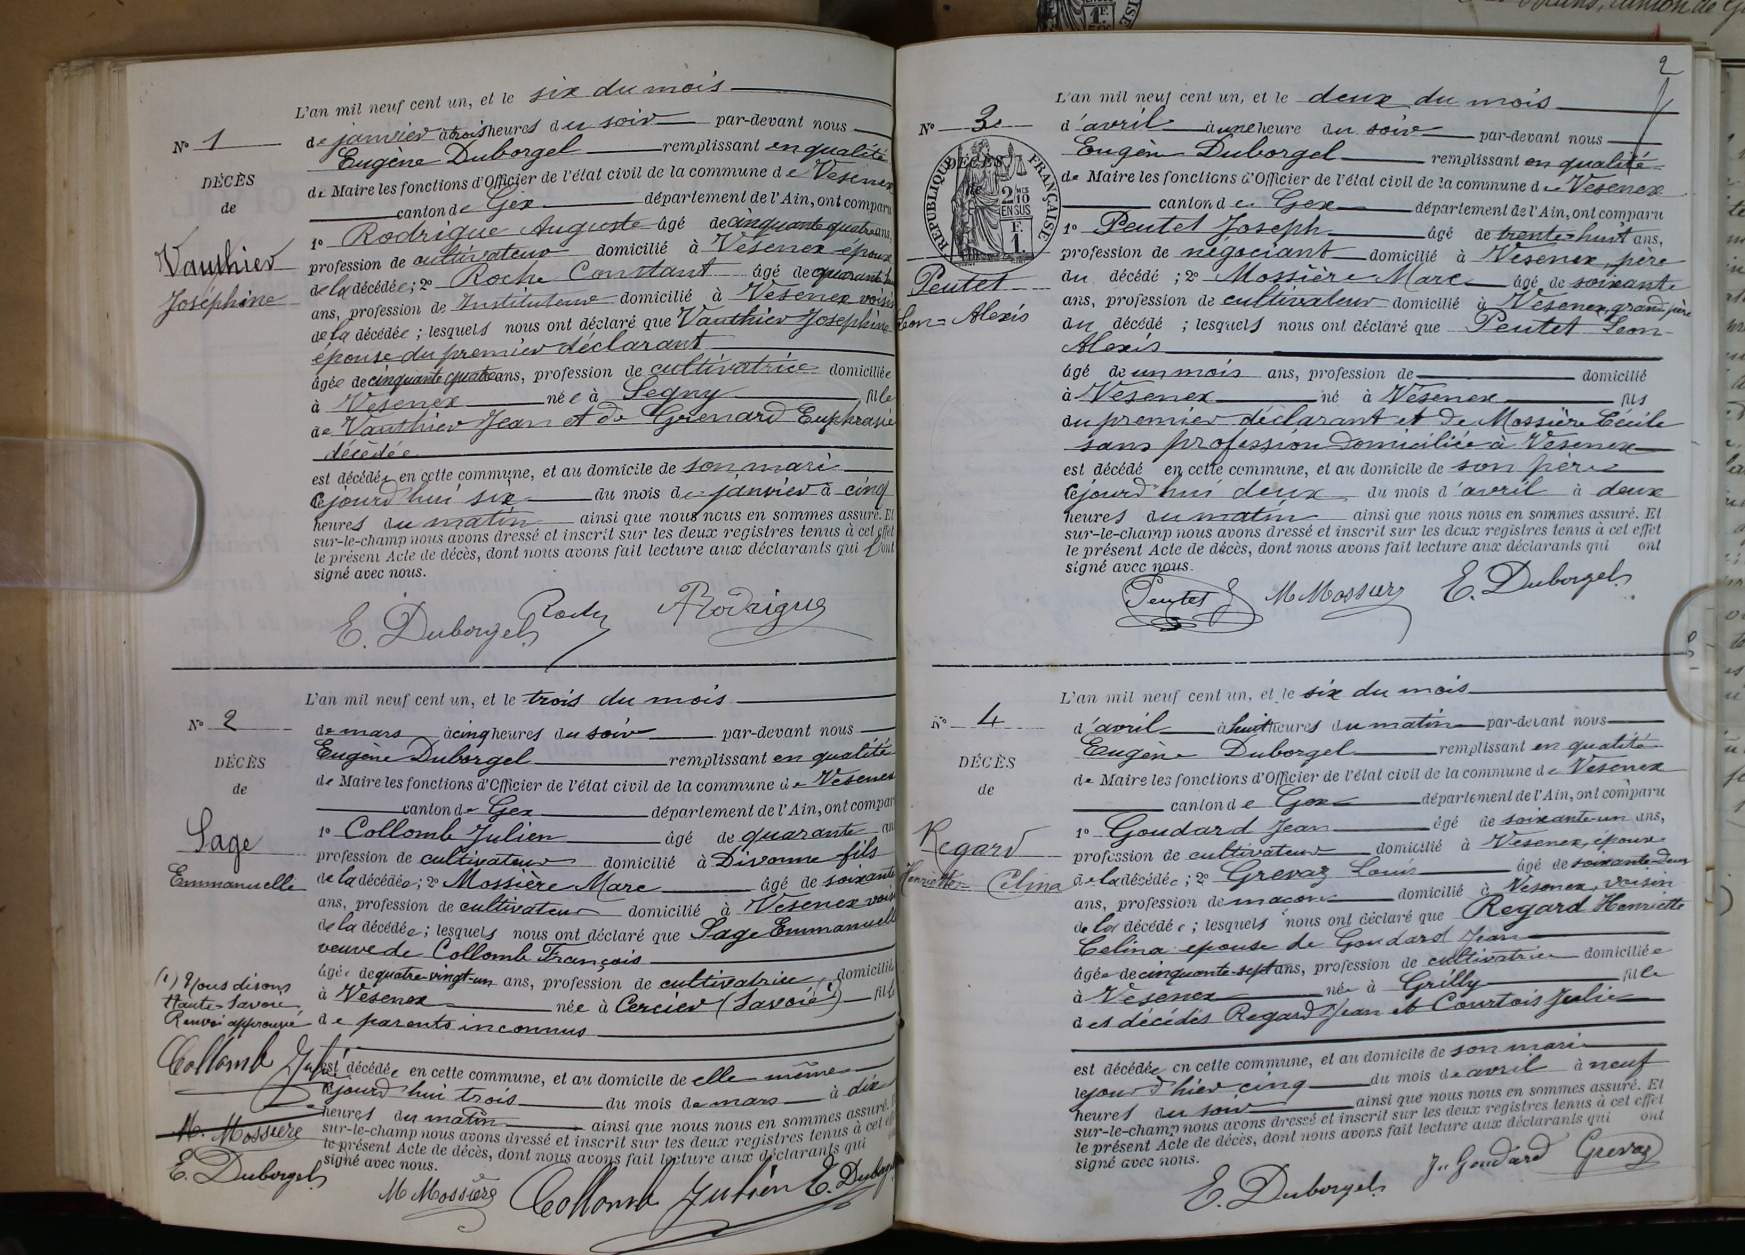 L'an mil neuf cent un, et le six du mois
N° 1
DÉCÈS
de
Vauthier
Joséphine
de janvier à trois heures du soir par-devant nous
Eugène Duborgel remplissant en qualité
de Maire les fonctions d'Officier de l'état civil de la commune de Vesenex
canton de Gex département de l'Ain, ont comparu
1° Rodrigue Auguste âgé de cinquante quatre ans,
profession de cultivateur domicilié à Vesenex époux
de la décédée ; 2° Roche Constant âgé de quarante
ans, profession de Instituteur domicilié à Vesenex voisin
de la décédée ; lesquels nous ont déclaré que Vauthier Joséphine
épouse du premier déclarant
âgée de cinquante quatre ans, profession de cultivatrice domiciliée
à Vesenex née à Segny fille
de Vauthier Jean et de Grenard Euphrasie
décédée
est décédée en cette commune, et au domicile de son mari
cejourd'hui six du mois de janvier à cinq
heures du matin ainsi que nous nous en sommes assuré. Et
sur-le-champ nous avons dressé et inscrit sur les deux registres tenus à cet effet
le présent Acte de décès, dont nous avons fait lecture aux déclarants qui l'ont
signé avec nous.
E. Duborgel Roche ARodrigue
L'an mil neuf cent un, et le trois du mois
N° 2
DÉCÈS
de
Sage
Emmanuelle
de mars à cinq heures du soir par-devant nous
Eugène Duborgel remplissant en qualité
de Maire les fonctions d'Officier de l'état civil de la commune de Vesenex
canton de Gex département de l'Ain, ont compar
1° Collomb Julien âgé de quarante an
profession de cultivateur domicilié à Divonne fils
de la décédée ; 2° Mossière Marc âgé de soixante
ans, profession de cultivateur domicilié à Vesenex vois
de la décédée ; lesquels nous ont déclaré que Sage Emmanuelle
veuve de Collomb François
âgée de quatre-vingt-un ans, profession de cultivatrice domicilié
à Vesenex née à Cercier (Savoie) (1) fille
de parents inconnus
(1) Nous disons
Haute-Savoie
Renvoi approuvé
Collomb Julien
M. Mossière
E. Duborgel
est décédée en cette commune, et au domicile de elle même
cejourd'hui trois du mois de mars à dix
heures du matin ainsi que nous nous en sommes assuré.
sur-le-champ nous avons dressé et inscrit sur les deux registres tenus à cet ef
le présent Acte de décès, dont nous avons fait lecture aux déclarants qui
signé avec nous.
M Mossière Collomb Julien E. Duborgel
2
L'an mil neuf cent un, et le deux du mois
N° 3
RÉPUBLIQUE FRANÇAISE
DÉCÈS
de
2/10
EN SUS
1 F.
Peutet
Léon Alexis
d'avril à une heure du soir par-devant nous
Eugène Duborgel remplissant en qualité
de Maire les fonctions d'Officier de l'état civil de la commune de Vesenex
canton de Gex département de l'Ain, ont comparu
1° Peutet Joseph âgé de trente-huit ans,
profession de négociant domicilié à Vesenex, père
du décédé ; 2° Mossière Marc âgé de soixante
ans, profession de cultivateur domicilié à Vesenex, grand père
du décédé ; lesquels nous ont déclaré que Peutet Léon
Alexis
âgé de un mois ans, profession de domicilié
à Vesenex né à Vesenex fils
du premier déclarant et de Mossière Cécile
sans profession domiciliée à Vesenex
est décédé en cette commune, et au domicile de son père
cejourd'hui deux du mois d'avril à deux
heures du matin ainsi que nous nous en sommes assuré. Et
sur-le-champ nous avons dressé et inscrit sur les deux registres tenus à cet effet
le présent Acte de décès, dont nous avons fait lecture aux déclarants qui ont
signé avec nous.
Peutet J M Mossière E. Duborgel
L'an mil neuf cent un, et le six du mois
N° 4
DÉCÈS
de
Regard
Henriette Célina
d'avril à huit heures du matin par-devant nous
Eugène Duborgel remplissant en qualité
de Maire les fonctions d'Officier de l'état civil de la commune de Vesenex
canton de Gex département de l'Ain, ont comparu
1° Goudard Jean âgé de soixante-un ans,
profession de cultivateur domicilié à Vesenex, époux
de la décédée ; 2° Grevaz Louis âgé de soixante-deux
ans, profession de maçon domicilié à Vesenex, voisin
de la décédée ; lesquels nous ont déclaré que Regard Henriette
Celina épouse de Goudard Jean
âgée de cinquante-sept ans, profession de cultivatrice domiciliée
à Vesenex née à Grilly fille
des décédés Regard Jean et Courtois Julie
est décédée en cette commune, et au domicile de son mari
lejour d'hier cinq du mois de avril à neuf
heures du soir ainsi que nous nous en sommes assuré. Et
sur-le-champ nous avons dressé et inscrit sur les deux registres tenus à cet effet
le présent Acte de décès, dont nous avons fait lecture aux déclarants qui ont
signé avec nous.
E. Duborgel Jn Goudard Grevaz